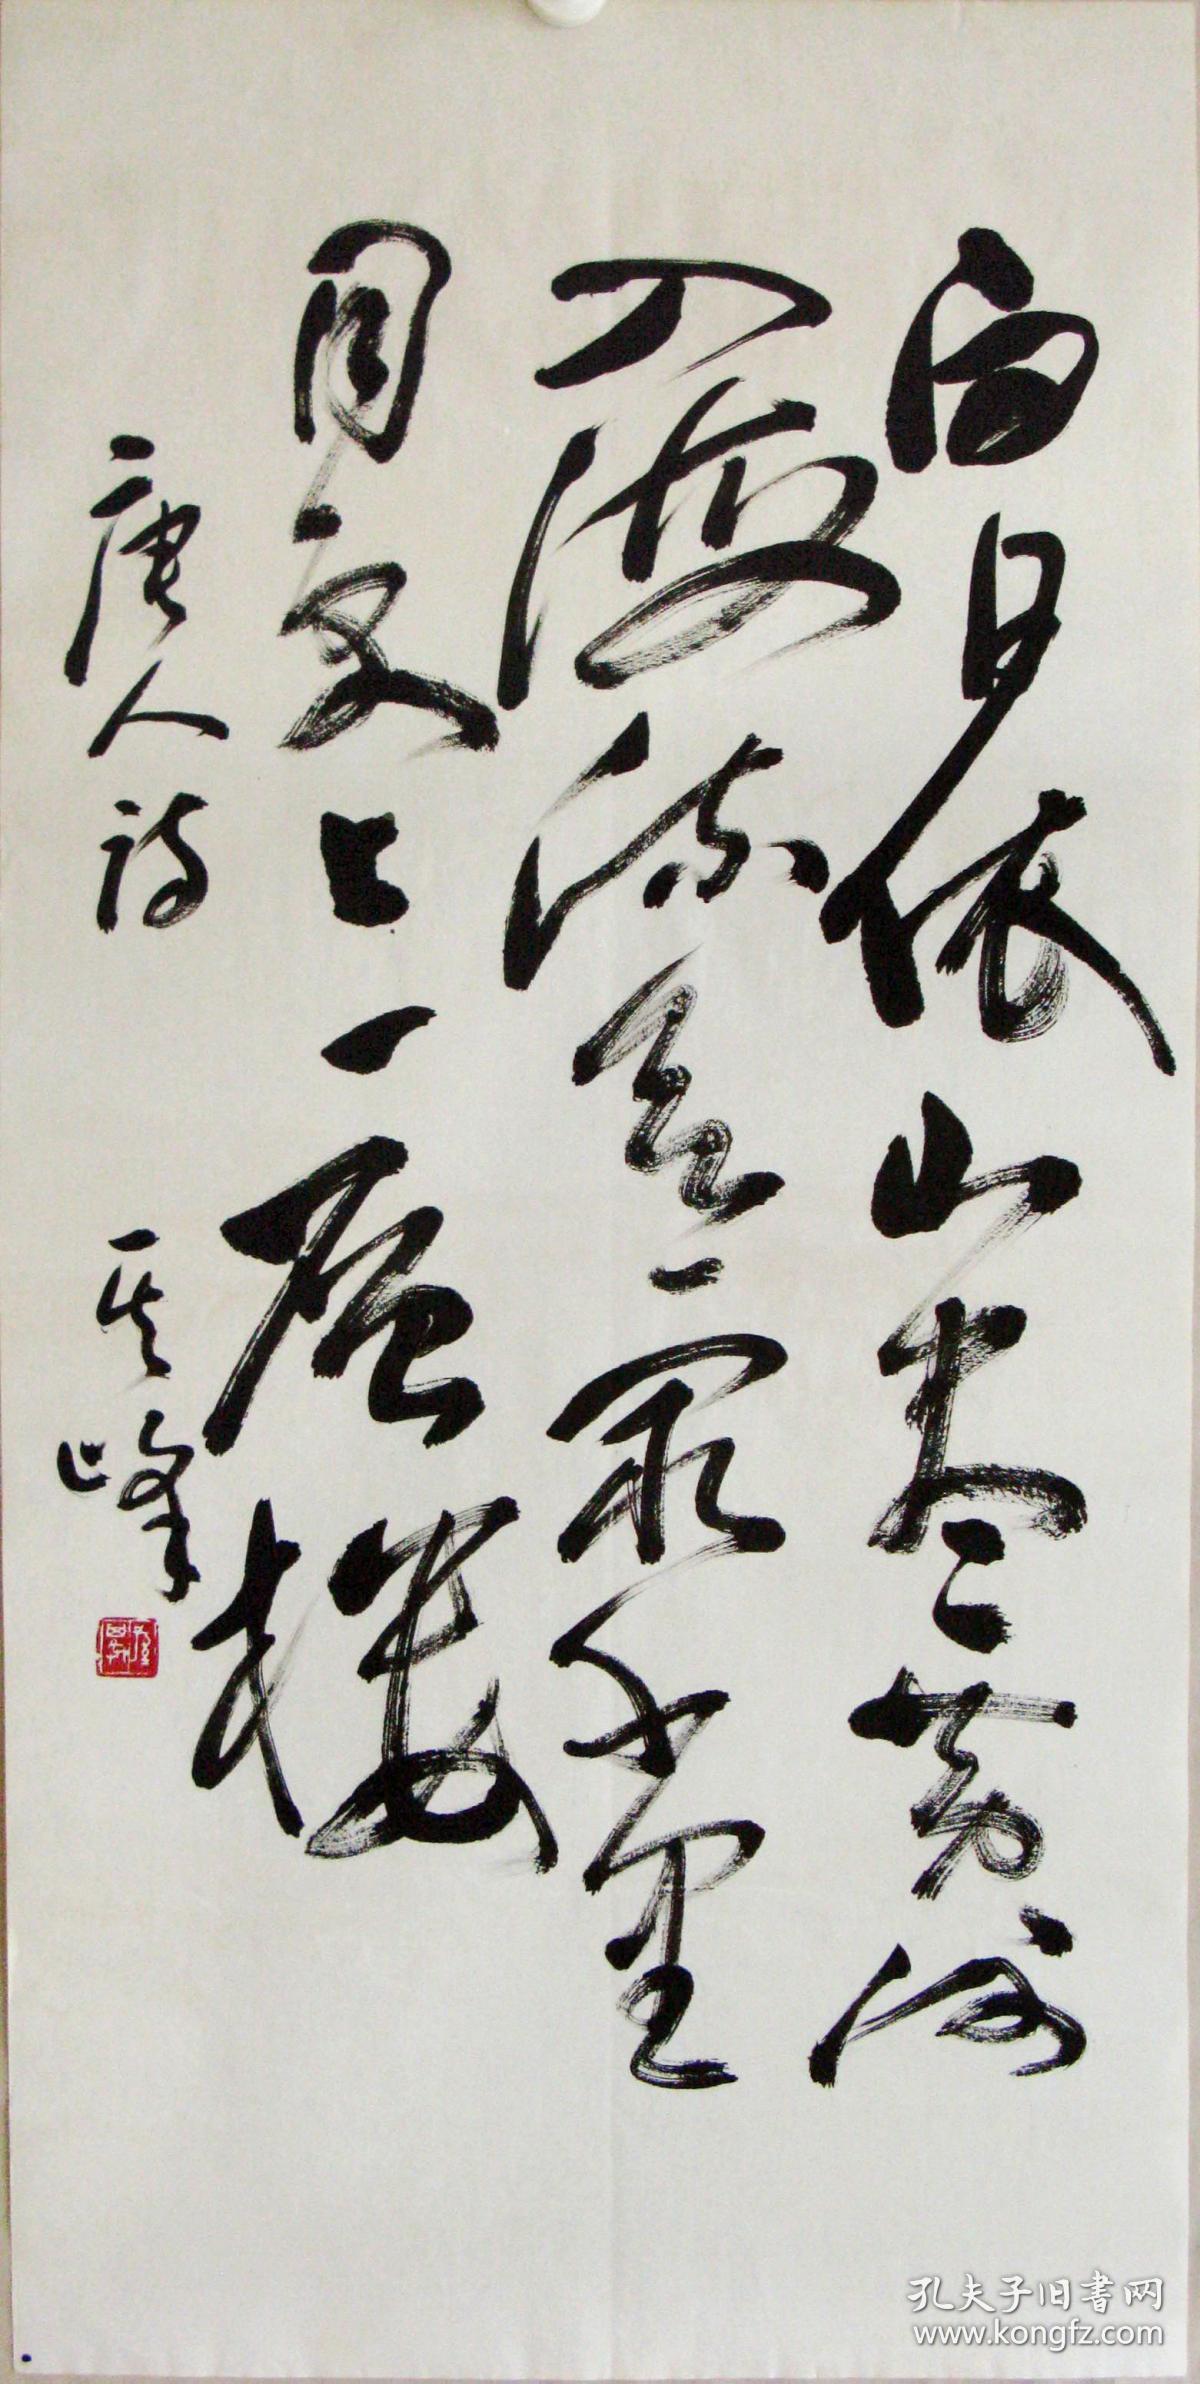 白日依山尽黄河
入海流欲穷千里
目更上一层楼
唐人诗 其峰
孔夫子旧书网
www.kongfz.com